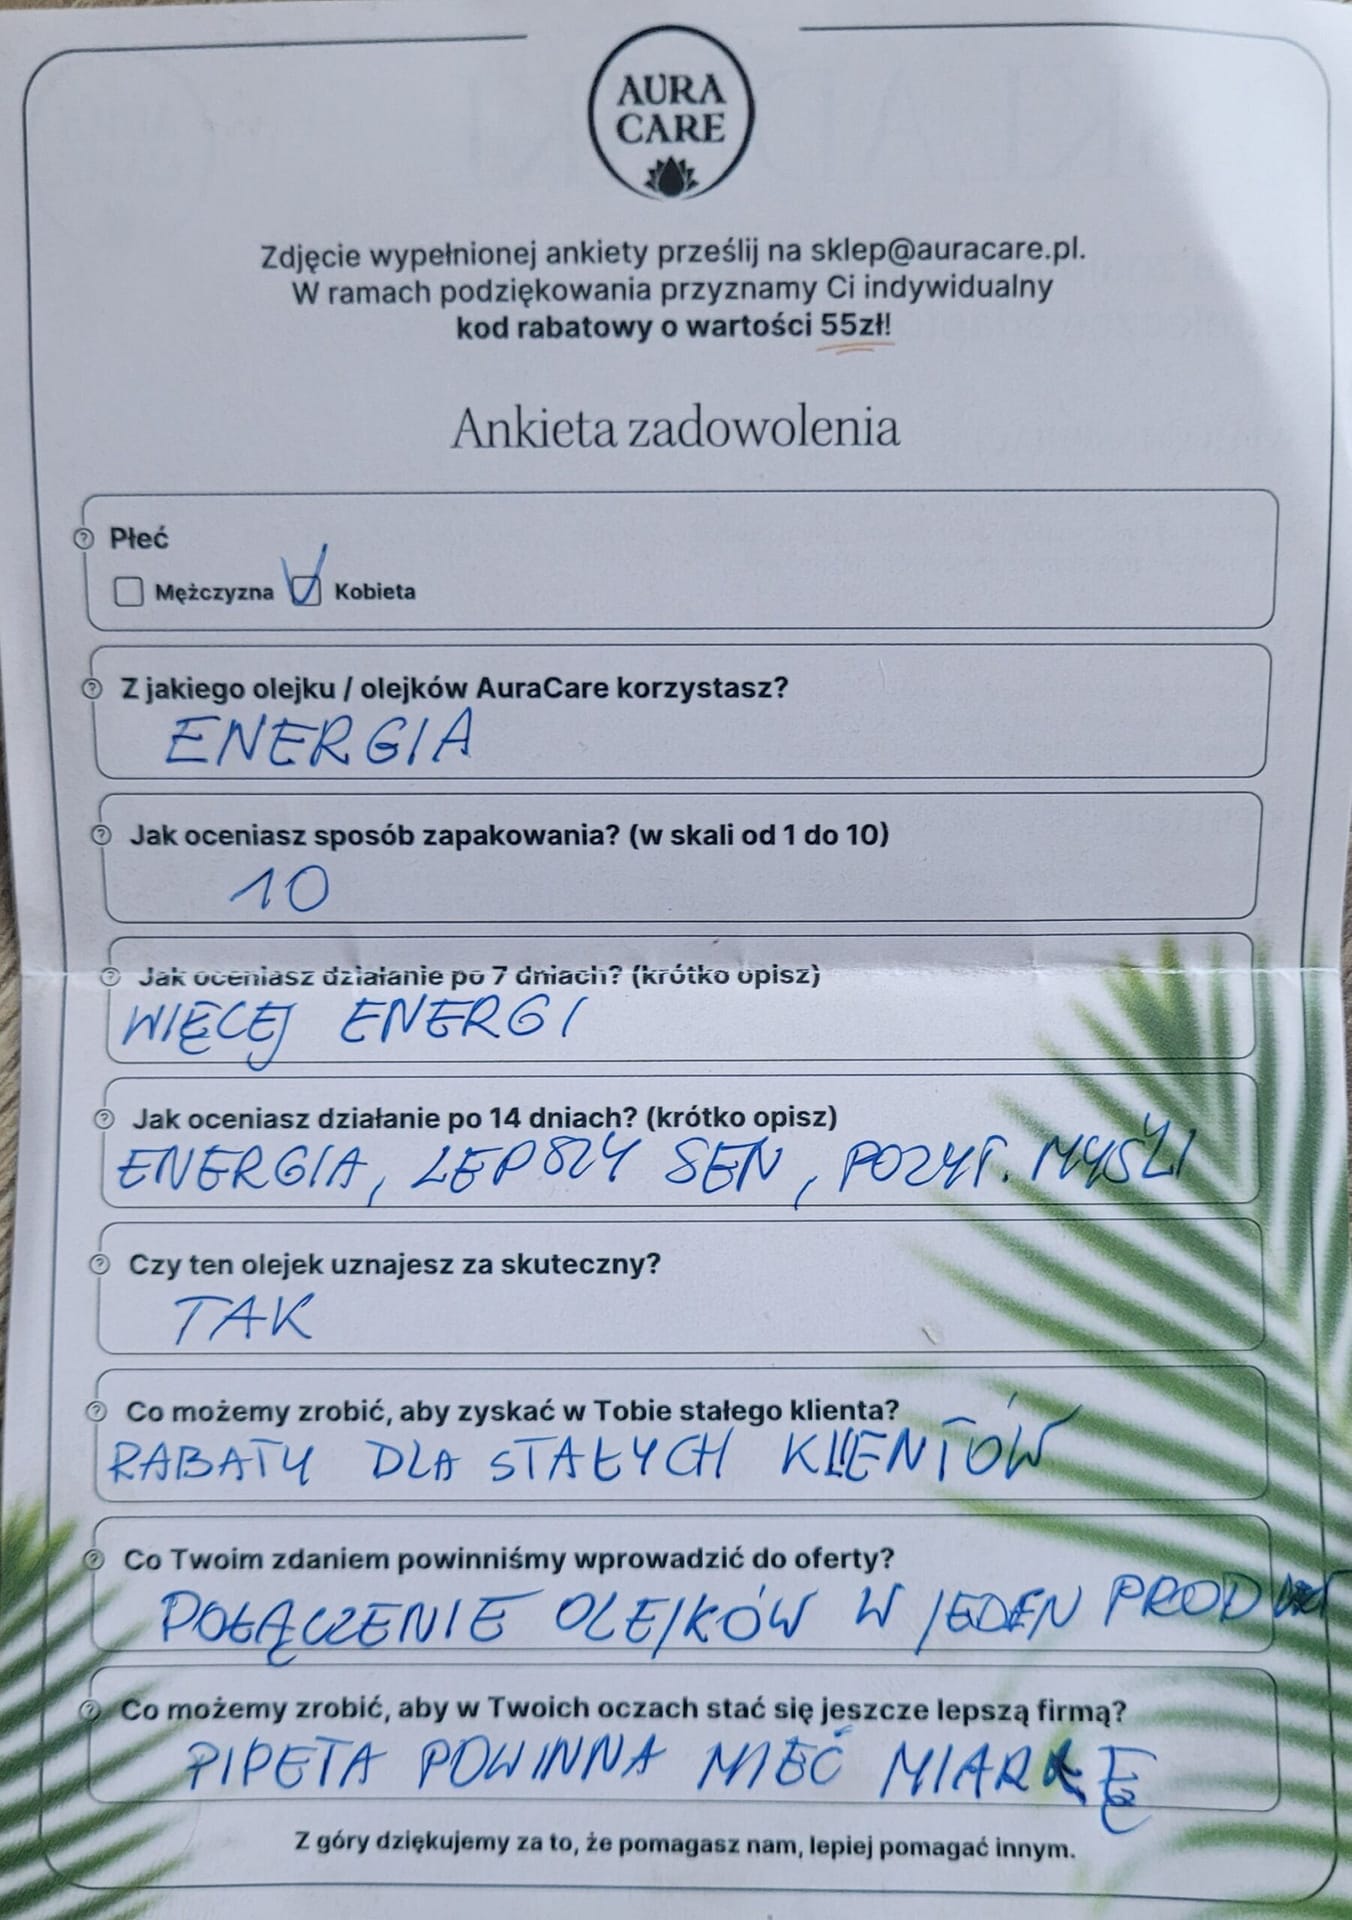 AURA
CARE
Zdjęcie wypełnionej ankiety prześlij na sklep@auracare.pl.
W ramach podziękowania przyznamy Ci indywidualny
kod rabatowy o wartości 55zł!
Ankieta zadowolenia
Płeć
Mężczyzna Kobieta
Z jakiego olejku / olejków AuraCare korzystasz?
ENERGIA
Jak oceniasz sposób zapakowania? (w skali od 1 do 10)
10
Jak oceniasz działanie po 7 dniach? (krótko opisz)
WIĘCEJ ENERGI
Jak oceniasz działanie po 14 dniach? (krótko opisz)
ENERGIA, LEPSZY SEN, POZYT. MYŚLI
Czy ten olejek uznajesz za skuteczny?
TAK
Co możemy zrobić, aby zyskać w Tobie stałego klienta?
RABATY DLA STAŁYCH KLIENTÓW
Co Twoim zdaniem powinniśmy wprowadzić do oferty?
POŁĄCZENIE OLEJKÓW W JEDEN
Co możemy zrobić, aby w Twoich oczach stać się jeszcze lepszą firmą?
PIPETA POWINNA MIEĆ MIARKĘ
Z góry dziękujemy za to, że pomagasz nam, lepiej pomagać innym.